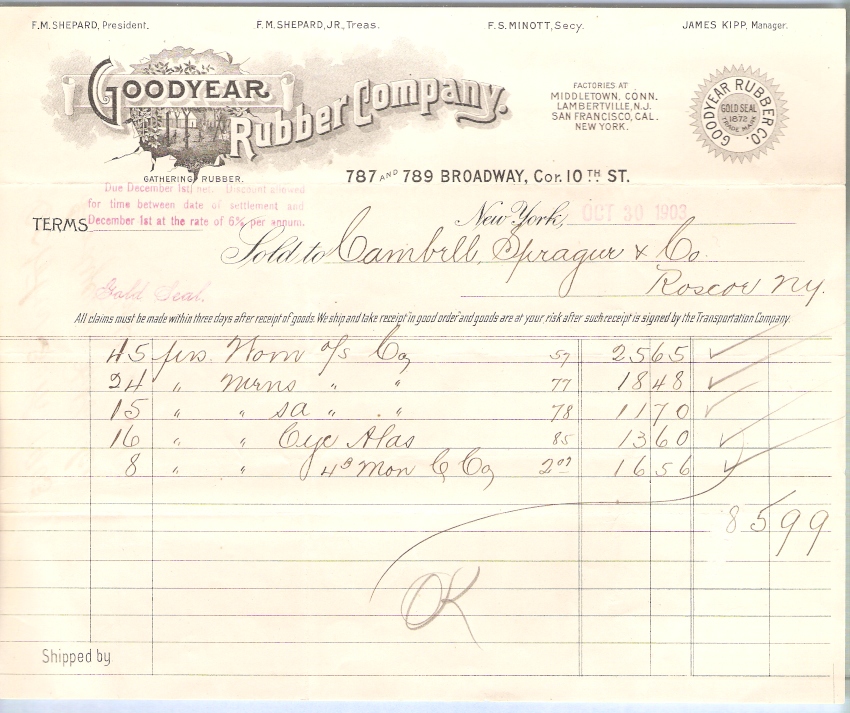 F.M. SHEPARD, President. F.M. SHEPARD, JR., Treas. F.S. MINOTT, Secy. JAMES KIPP, Manager.
GOODYEAR
Rubber Company.
GATHERING RUBBER.
FACTORIES AT
MIDDLETOWN, CONN.
LAMBERTVILLE, N.J.
SAN FRANCISCO, CAL.
NEW YORK.
GOODYEAR RUBBER CO.
GOLD SEAL
1872
TRADE MARK
787 AND 789 BROADWAY, COR. 10TH ST.
Due December 1st net. Discount allowed
for time between date of settlement and
December 1st at the rate of 6% per annum.
TERMS
New York, OCT 30 1903
Sold to Cambell, Sprague & Co.
Roscoe NY.
Gold Seal.
All claims must be made within three days after receipt of goods. We ship and take receipt "in good order" and goods are at your risk after such receipt is signed by the Transportation Company.
45 prs. Wom o/s Co 57 2565
24 " Mens " " 77 1848
15 " " sa " " 78 1170
16 " " Alas 85 1360
8 " " Mon C Co 2 07 1656
8599
OK
Shipped by